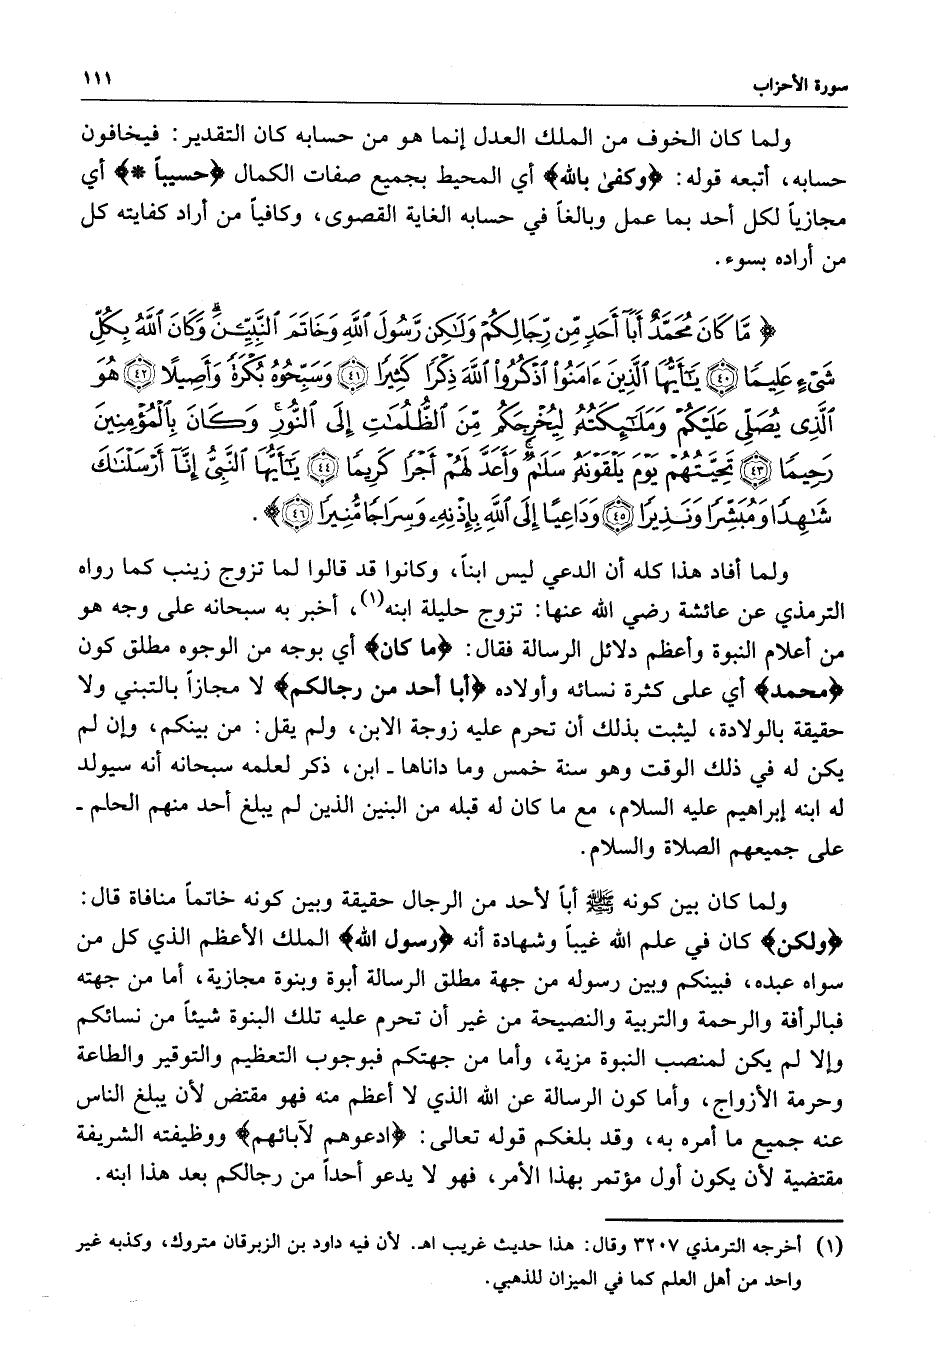 سورة الأحزاب
١١١
ولما كان الخوف من الملك العدل إنما هو من حسابه كان التقدير: فيخافون
حسابه، أتبعه قوله: ﴿وكفىٰ بالله﴾ أي المحيط بجميع صفات الكمال ﴿حسيباً *﴾ أي
مجازياً لكل أحد بما عمل وبالغاً في حسابه الغاية القصوى، وكافياً من أراد كفايته كل
من أراده بسوء.
﴿ مَّا كَانَ مُحَمَّدٌ أَبَآ أَحَدٍ مِّن رِّجَالِكُمْ وَلَٰكِن رَّسُولَ ٱللَّهِ وَخَاتَمَ ٱلنَّبِيِّـۧنَ ۗ وَكَانَ ٱللَّهُ بِكُلِّ
شَىْءٍ عَلِيمًا ﴿٤٠﴾ يَٰٓأَيُّهَا ٱلَّذِينَ ءَامَنُوا۟ ٱذْكُرُوا۟ ٱللَّهَ ذِكْرًا كَثِيرًا ﴿٤١﴾ وَسَبِّحُوهُ بُكْرَةً وَأَصِيلًا ﴿٤٢﴾ هُوَ
ٱلَّذِى يُصَلِّى عَلَيْكُمْ وَمَلَٰٓئِكَتُهُۥ لِيُخْرِجَكُم مِّنَ ٱلظُّلُمَٰتِ إِلَى ٱلنُّورِ ۚ وَكَانَ بِٱلْمُؤْمِنِينَ
رَحِيمًا ﴿٤٣﴾ تَحِيَّتُهُمْ يَوْمَ يَلْقَوْنَهُۥ سَلَٰمٌ ۚ وَأَعَدَّ لَهُمْ أَجْرًا كَرِيمًا ﴿٤٤﴾ يَٰٓأَيُّهَا ٱلنَّبِىُّ إِنَّآ أَرْسَلْنَٰكَ
شَٰهِدًا وَمُبَشِّرًا وَنَذِيرًا ﴿٤٥﴾ وَدَاعِيًا إِلَى ٱللَّهِ بِإِذْنِهِۦ وَسِرَاجًا مُّنِيرًا ﴿٤٦﴾ ﴾.
ولما أفاد هذا كله أن الدعي ليس ابناً، وكانوا قد قالوا لما تزوج زينب كما رواه
الترمذي عن عائشة رضي الله عنها: تزوج حليلة ابنه(١)، أخبر به سبحانه على وجه هو
من أعلام النبوة وأعظم دلائل الرسالة فقال: ﴿ما كان﴾ أي بوجه من الوجوه مطلق كون
﴿محمد﴾ أي على كثرة نسائه وأولاده ﴿أبا أحد من رجالكم﴾ لا مجازاً بالتبني ولا
حقيقة بالولادة، ليثبت بذلك أن تحرم عليه زوجة الابن، ولم يقل: من بينكم، وإن لم
يكن له في ذلك الوقت وهو سنة خمس وما داناها ـ ابن، ذكر لعلمه سبحانه أنه سيولد
له ابنه إبراهيم عليه السلام، مع ما كان له قبله من البنين الذين لم يبلغ أحد منهم الحلم ـ
على جميعهم الصلاة والسلام.
ولما كان بين كونه ﷺ أباً لأحد من الرجال حقيقة وبين كونه خاتماً منافاة قال:
﴿ولكن﴾ كان في علم الله غيباً وشهادة أنه ﴿رسول الله﴾ الملك الأعظم الذي كل من
سواه عبده، فبينكم وبين رسوله من جهة مطلق الرسالة أبوة وبنوة مجازية، أما من جهته
فبالرأفة والرحمة والتربية والنصيحة من غير أن تحرم عليه تلك البنوة شيئاً من نسائكم
وإلا لم يكن لمنصب النبوة مزية، وأما من جهتكم فبوجوب التعظيم والتوقير والطاعة
وحرمة الأزواج، وأما كون الرسالة عن الله الذي لا أعظم منه فهو مقتض لأن يبلغ الناس
عنه جميع ما أمره به، وقد بلغكم قوله تعالى: ﴿ادعوهم لآبائهم﴾ ووظيفته الشريفة
مقتضية لأن يكون أول مؤتمر بهذا الأمر، فهو لا يدعو أحداً من رجالكم بعد هذا ابنه.
(١) أخرجه الترمذي ٣٢٠٧ وقال: هذا حديث غريب اهـ. لأن فيه داود بن الزبرقان متروك، وكذبه غير
واحد من أهل العلم كما في الميزان للذهبي.